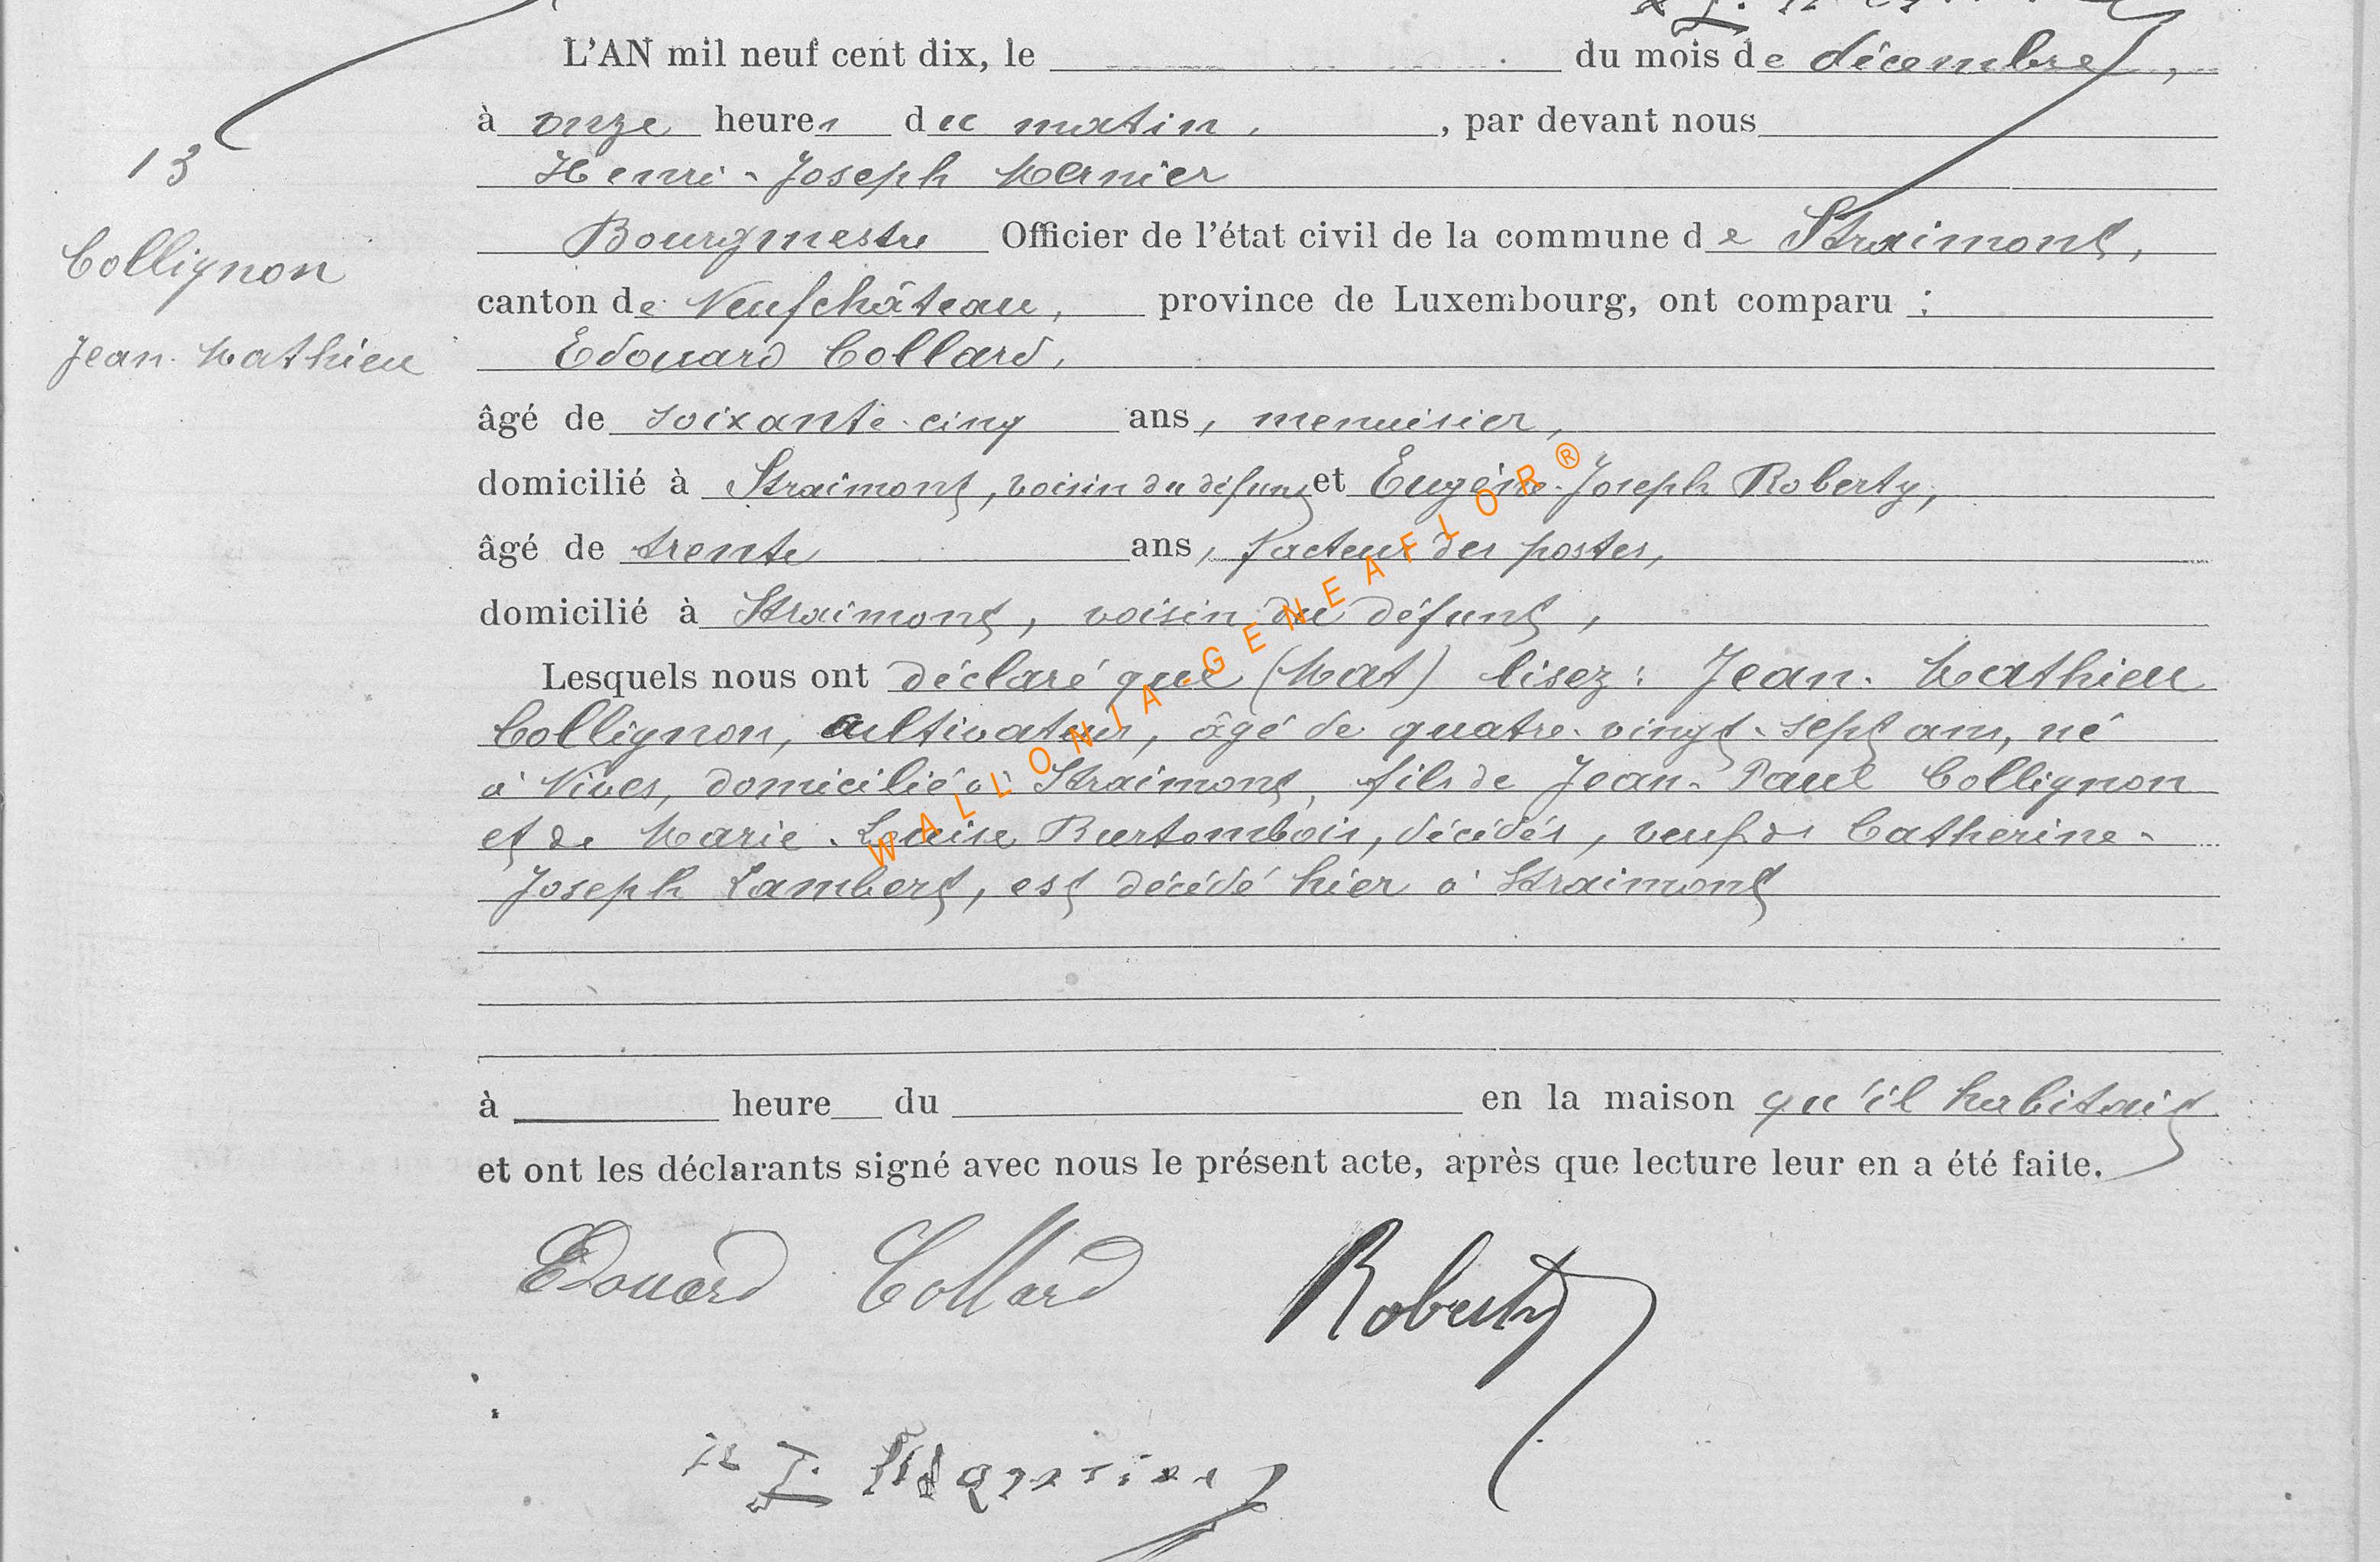 L'AN mil neuf cent dix, le du mois de décembre,
à onze heures du matin, par devant nous
13
Henri-Joseph Manier
Collignon
Bourgmestre Officier de l'état civil de la commune de Straimont,
canton de Neufchâteau, province de Luxembourg, ont comparu :
Jean-Mathieu
Edouard Collard,
âgé de soixante-cinq ans, menuisier,
domicilié à Straimont, voisin du défunt et Eugène-Joseph Roberty,
âgé de trente ans, facteur des postes,
domicilié à Straimont, voisin du défunt,
WALLONIA-GENEAFLOR®
Lesquels nous ont déclaré que (Mat) lisez : Jean-Mathieu
Collignon, cultivateur, âgé de quatre-vingt-sept ans, né
à Nives, domicilié à Straimont, fils de Jean-Paul Collignon
et de Marie-Louise Burtombois, décédés, veuf de Catherine-
Joseph Lambert, est décédé hier à Straimont
à heure du en la maison qu'il habitait
et ont les déclarants signé avec nous le présent acte, après que lecture leur en a été faite.
Edouard Collard Roberty
J. Manier